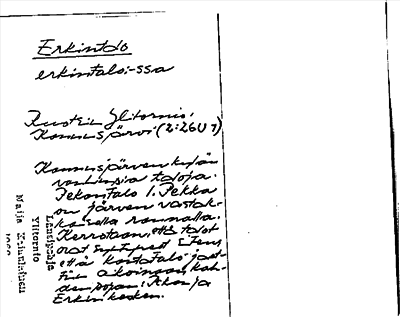 Erkintalo
erkintaloi-ssa
Ruotsin Ylitornio,
Kainuusjärvi (2:26U7)
Kainuusjärven kylän
vanhimpia taloja.
Pekantalo l. Pekka
on järven vastak-
kaisella rannalla.
Kerrotaan, että talot
ovat syntyneet siten,
että kantatalo jaet-
tiin aikoinaan kah-
den pojan, Pekan ja
Erkin kesken.
Länsipohja
Ylitornio
Maija